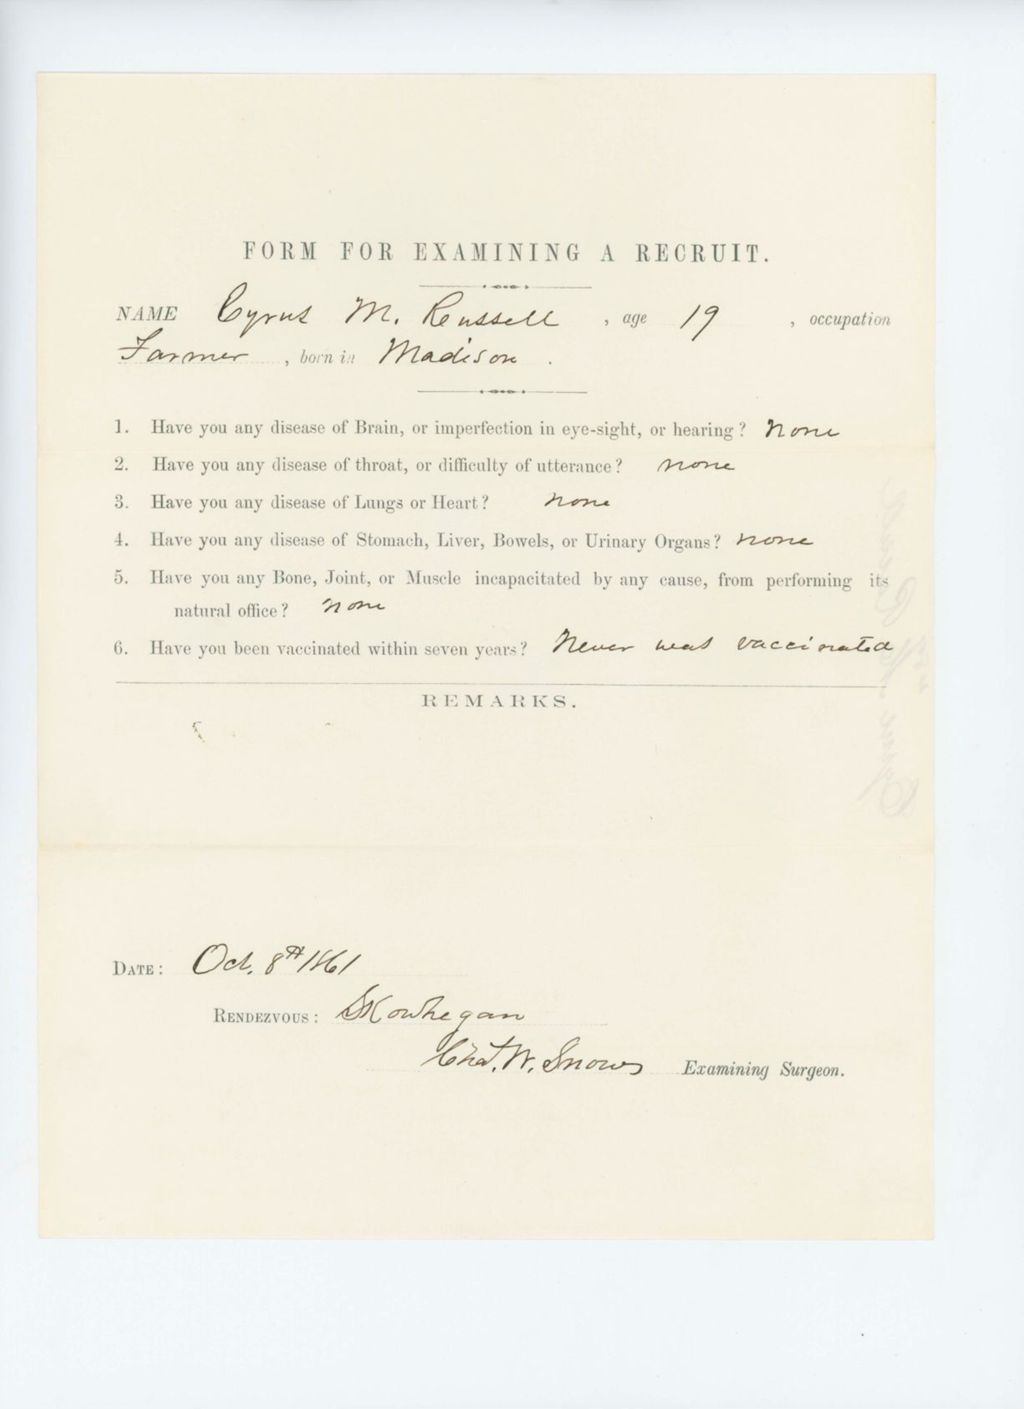 FORM FOR EXAMINING A RECRUIT.
NAME Cyrus M. Russell , age 19 , occupation
Farmer , born in Madison .
1. Have you any disease of Brain, or imperfection in eye-sight, or hearing? None
2. Have you any disease of throat, or difficulty of utterance? none
3. Have you any disease of Lungs or Heart? none
4. Have you any disease of Stomach, Liver, Bowels, or Urinary Organs? none
5. Have you any Bone, Joint, or Muscle incapacitated by any cause, from performing its
natural office? none
6. Have you been vaccinated within seven years? Never was vaccinated
REMARKS.
DATE: Oct. 8th 1861
RENDEZVOUS: Skowhegan
Chas. W. Snow Examining Surgeon.